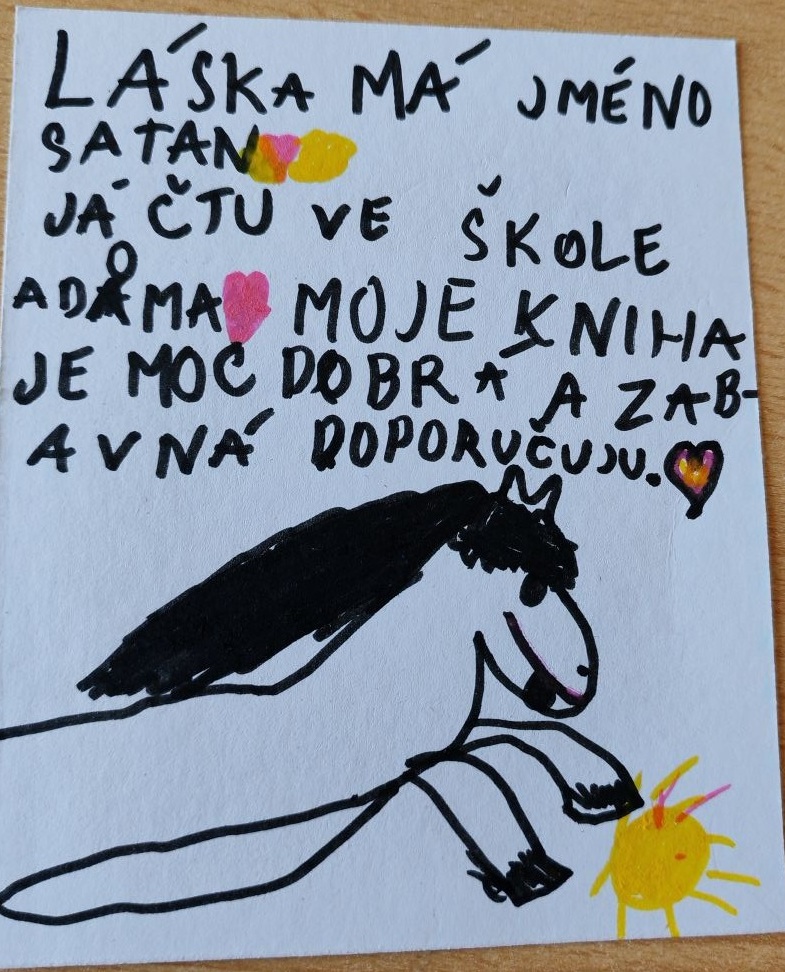 LÁSKA MÁ JMÉNO
SATAN
JÁ ČTU VE ŠKOLE
ADÅMA MOJE KNIHA
JE MOC DOBRÁ A ZAB-
AVNÁ DOPORUČUJU.